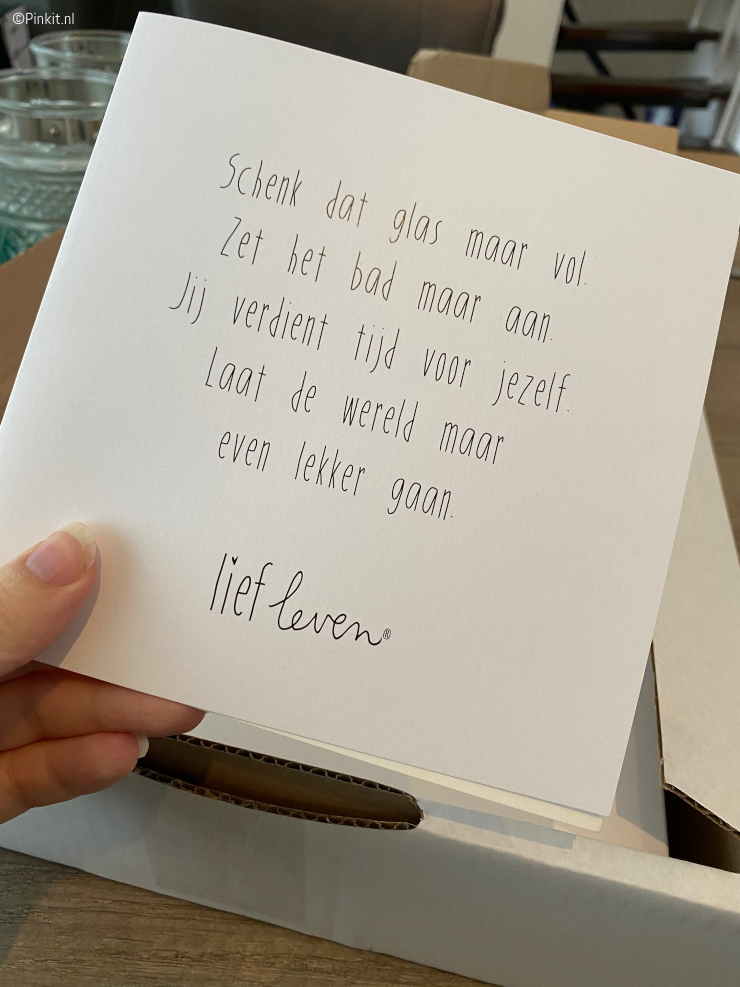 ©Pinkit.nl
Schenk dat glas maar vol.
Zet het bad maar aan.
Jij verdient tijd voor jezelf.
Laat de wereld maar
even lekker gaan.
lief leven®